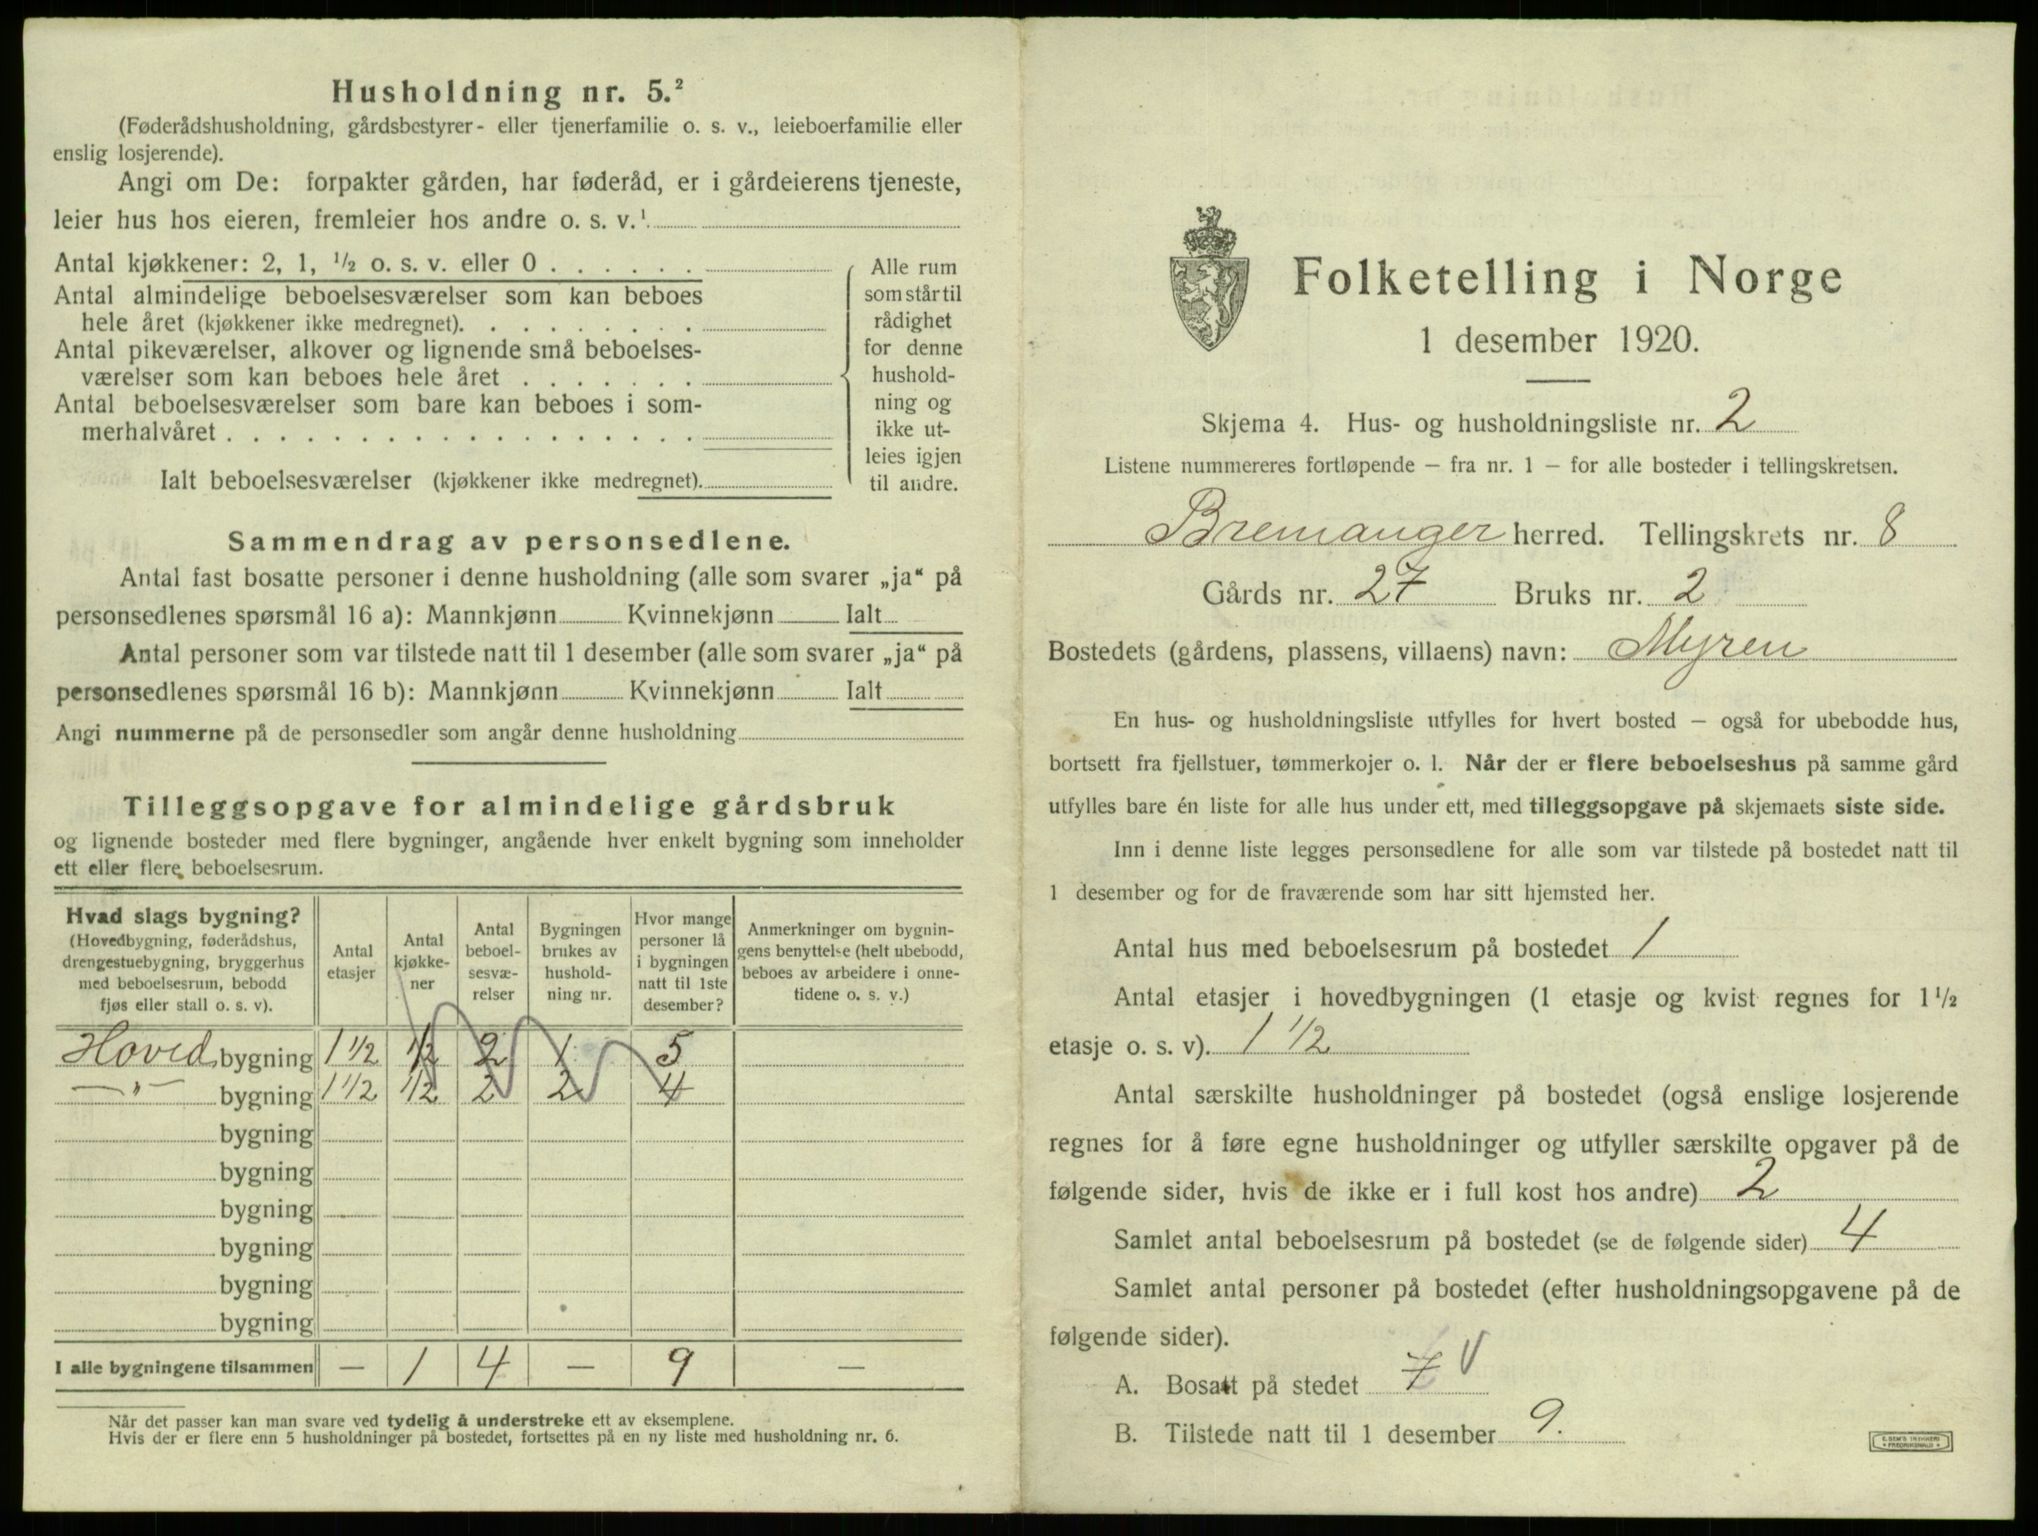 Husholdning nr. 5.²
(Føderådshusholdning, gårdsbestyrer- eller tjenerfamilie o. s. v., leieboerfamilie eller
enslig losjerende).
Angi om De: forpakter gården, har føderåd, er i gårdeierens tjeneste,
leier hus hos eieren, fremleier hos andre o. s. v.¹
Antal kjøkkener: 2, 1, ½ o. s. v. eller 0 . . . . . .
Antal almindelige beboelsesværelser som kan beboes
hele året (kjøkkener ikke medregnet). . . . . . . . .
Antal pikeværelser, alkover og lignende små beboelses-
værelser som kan beboes hele året . . . . . . .
Antal beboelsesværelser som bare kan beboes i som-
merhalvåret . . . . . . . . . . . . . . . . . .
Ialt beboelsesværelser (kjøkkener ikke medregnet).
Alle rum
som står til
rådighet
for denne
hushold-
ning og
ikke ut-
leies igjen
til andre.
Sammendrag av personsedlene.
Antal fast bosatte personer i denne husholdning (alle som svarer „ja“ på
personsedlenes spørsmål 16 a): Mannkjønn Kvinnekjønn Ialt
Antal personer som var tilstede natt til 1 desember (alle som svarer „ja“ på
personsedlenes spørsmål 16 b): Mannkjønn Kvinnekjønn Ialt
Angi nummerne på de personsedler som angår denne husholdning
Tilleggsopgave for almindelige gårdsbruk
og lignende bosteder med flere bygninger, angående hver enkelt bygning som inneholder
ett eller flere beboelsesrum.
Hvad slags bygning?
(Hovedbygning, føderådshus,
drengestuebygning, bryggerhus
med beboelsesrum, bebodd
fjøs eller stall o. s. v).
Antal
etasjer
Antal
kjøkke-
ner
Antal
beboel-
sesvæ-
relser
Bygningen
brukes av
hushold-
ning nr.
Hvor mange
personer lå
i bygningen
natt til 1ste
desember?
Anmerkninger om bygnin-
gens benyttelse (helt ubebodd,
beboes av arbeidere i onne-
tidene o. s. v.)
Hoved bygning 1 1/2 1/2 2 1 5
—"— bygning 1 1/2 1/2 2 2 4
bygning
bygning
bygning
bygning
bygning
bygning
I alle bygningene tilsammen — 1 4 — 9 —
Når det passer kan man svare ved tydelig å understreke ett av eksemplene.
Hvis der er flere enn 5 husholdninger på bostedet, fortsettes på en ny liste med husholdning nr. 6.
Folketelling i Norge
1 desember 1920.
Skjema 4. Hus- og husholdningsliste nr. 2
Listene nummereres fortløpende — fra nr. 1 — for alle bosteder i tellingskretsen.
Bremanger herred. Tellingskrets nr. 8
Gårds nr. 27 Bruks nr. 2
Bostedets (gårdens, plassens, villaens) navn: Myren
En hus- og husholdningsliste utfylles for hvert bosted — også for ubebodde hus,
bortsett fra fjellstuer, tømmerkojer o. l. Når der er flere beboelseshus på samme gård
utfylles bare én liste for alle hus under ett, med tilleggsopgave på skjemaets siste side.
Inn i denne liste legges personsedlene for alle som var tilstede på bostedet natt til
1 desember og for de fraværende som har sitt hjemsted her.
Antal hus med beboelsesrum på bostedet 1
Antal etasjer i hovedbygningen (1 etasje og kvist regnes for 1½
etasje o. s. v). 1 1/2
Antal særskilte husholdninger på bostedet (også enslige losjerende
regnes for å føre egne husholdninger og utfyller særskilte opgaver på de
følgende sider, hvis de ikke er i full kost hos andre) 2
Samlet antal beboelsesrum på bostedet (se de følgende sider) 4
Samlet antal personer på bostedet (efter husholdningsopgavene på de
følgende sider).
A. Bosatt på stedet 7 V
B. Tilstede natt til 1 desember 9.
E. SEM'S TRYKKERI
FREDRIKSHALD